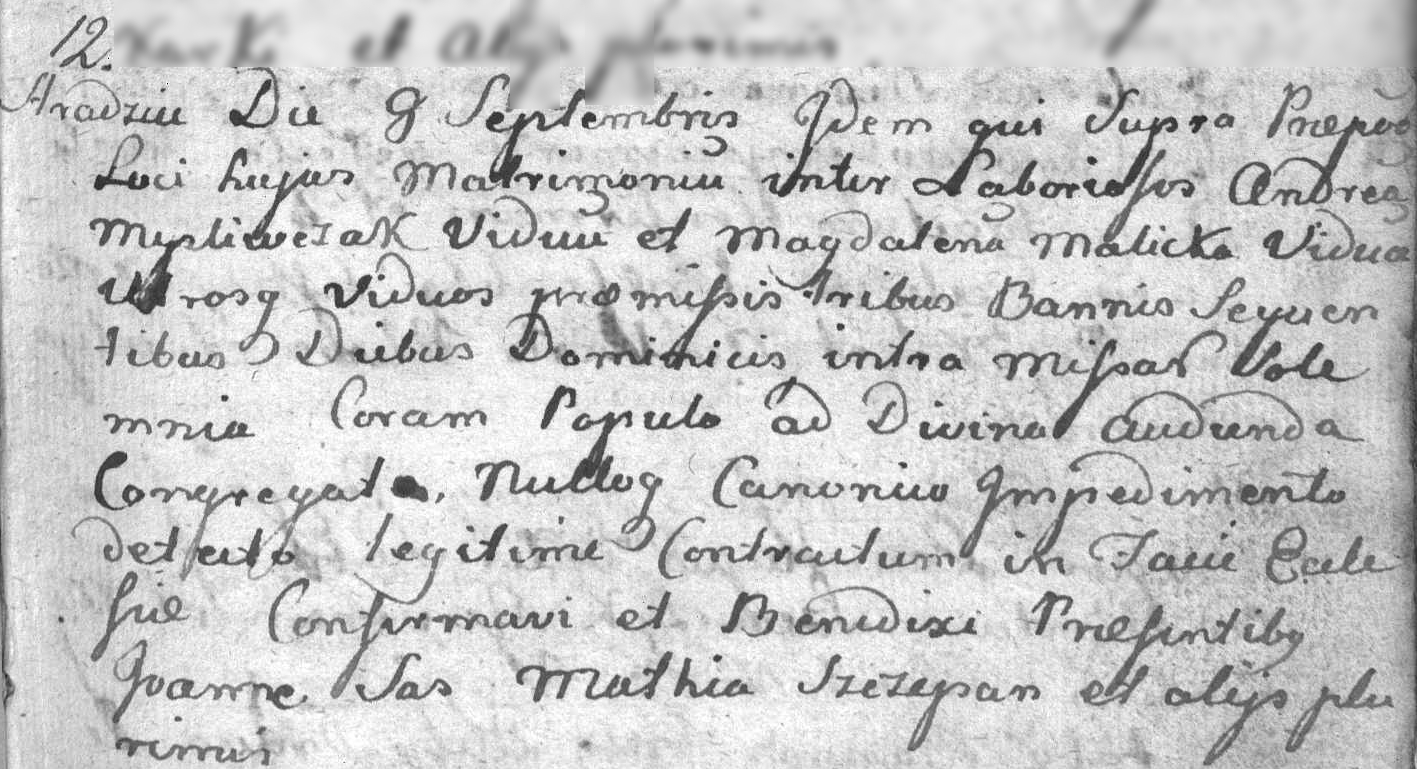 12.
Hradziu Die 9 Septembris Jdem qui Supra Præpos
Loci hujus Matrimoniũ inter Laboriosos Andreã
Mysliwczak Viduũ et Magdalenã Malicka Viduã
Utrosq Viduos præmissis tribus Bannis Sequen
tibus Diebus Dominicis intra Missar Sole
mnia Coram Populo ad Divina audienda
Congregato, Nulloq Canonico Jmpedimento
detecto legitime Contractum in Facie Eccle
siæ Confirmavi et Benedixi Præsentibg
Joanne Sas Mathia Szczepan et alijs plu
rimis